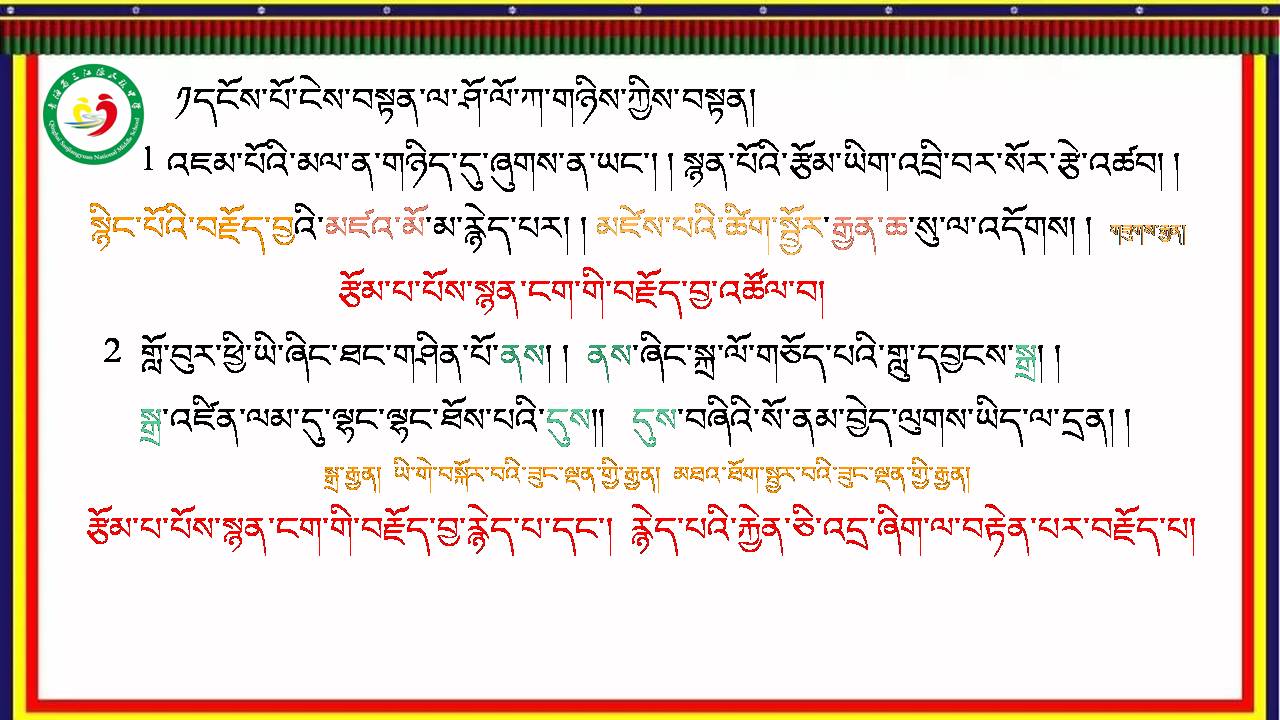 ༡དངོས་པོ་ངེས་བསྟན་ལ་ཤོ་ལོ་ཀ་གཉིས་ཀྱིས་བསྟན།
1 འཇམ་པོའི་མལ་ན་གཉིད་དུ་ཞུགས་ན་ཡང་། ། སྙན་པོའི་རྩོམ་ཡིག་འབྲི་བར་སོར་རྩེ་འཚབ། །
སྙིང་པོའི་བརྗོད་བྱའི་མཛའ་མོ་མ་རྙེད་པར། ། མཛེས་པའི་ཚིག་སྦྱོར་རྒྱན་ཆ་སུ་ལ་འདོགས། ། གཟུགས་རྒྱན།
རྩོམ་པ་པོས་སྙན་ངག་གི་བརྗོད་བྱ་འཚོལ་བ།
2 གློ་བུར་ཕྱི་ཡི་ཞིང་ཐང་གཤིན་པོ་ནས། ། ནས་ཞིང་སྐྲ་ལོ་གཅོད་པའི་གླུ་དབྱངས་སྒྲ། །
སྒྲ་འཛིན་ལམ་དུ་ལྷང་ལྷང་ཐོས་པའི་དུས།། དུས་བཞིའི་སོ་ནམ་བྱེད་ལུགས་ཡིད་ལ་དྲན། །
སྒྲ་རྒྱན། ཡི་གེ་བསྐོར་བའི་ཟུང་ལྡན་གྱི་རྒྱན། མཐའ་ཐོག་སྦྱར་བའི་ཟུང་ལྡན་གྱི་རྒྱན།
རྩོམ་པ་པོས་སྙན་ངག་གི་བརྗོད་བྱ་རྙེད་པ་དང་། རྙེད་པའི་རྐྱེན་ཅི་འདྲ་ཞིག་ལ་བརྟེན་པར་བརྗོད་པ།
青海省三江源民族中学
Qinghai Sanjiangyuan National Middle School